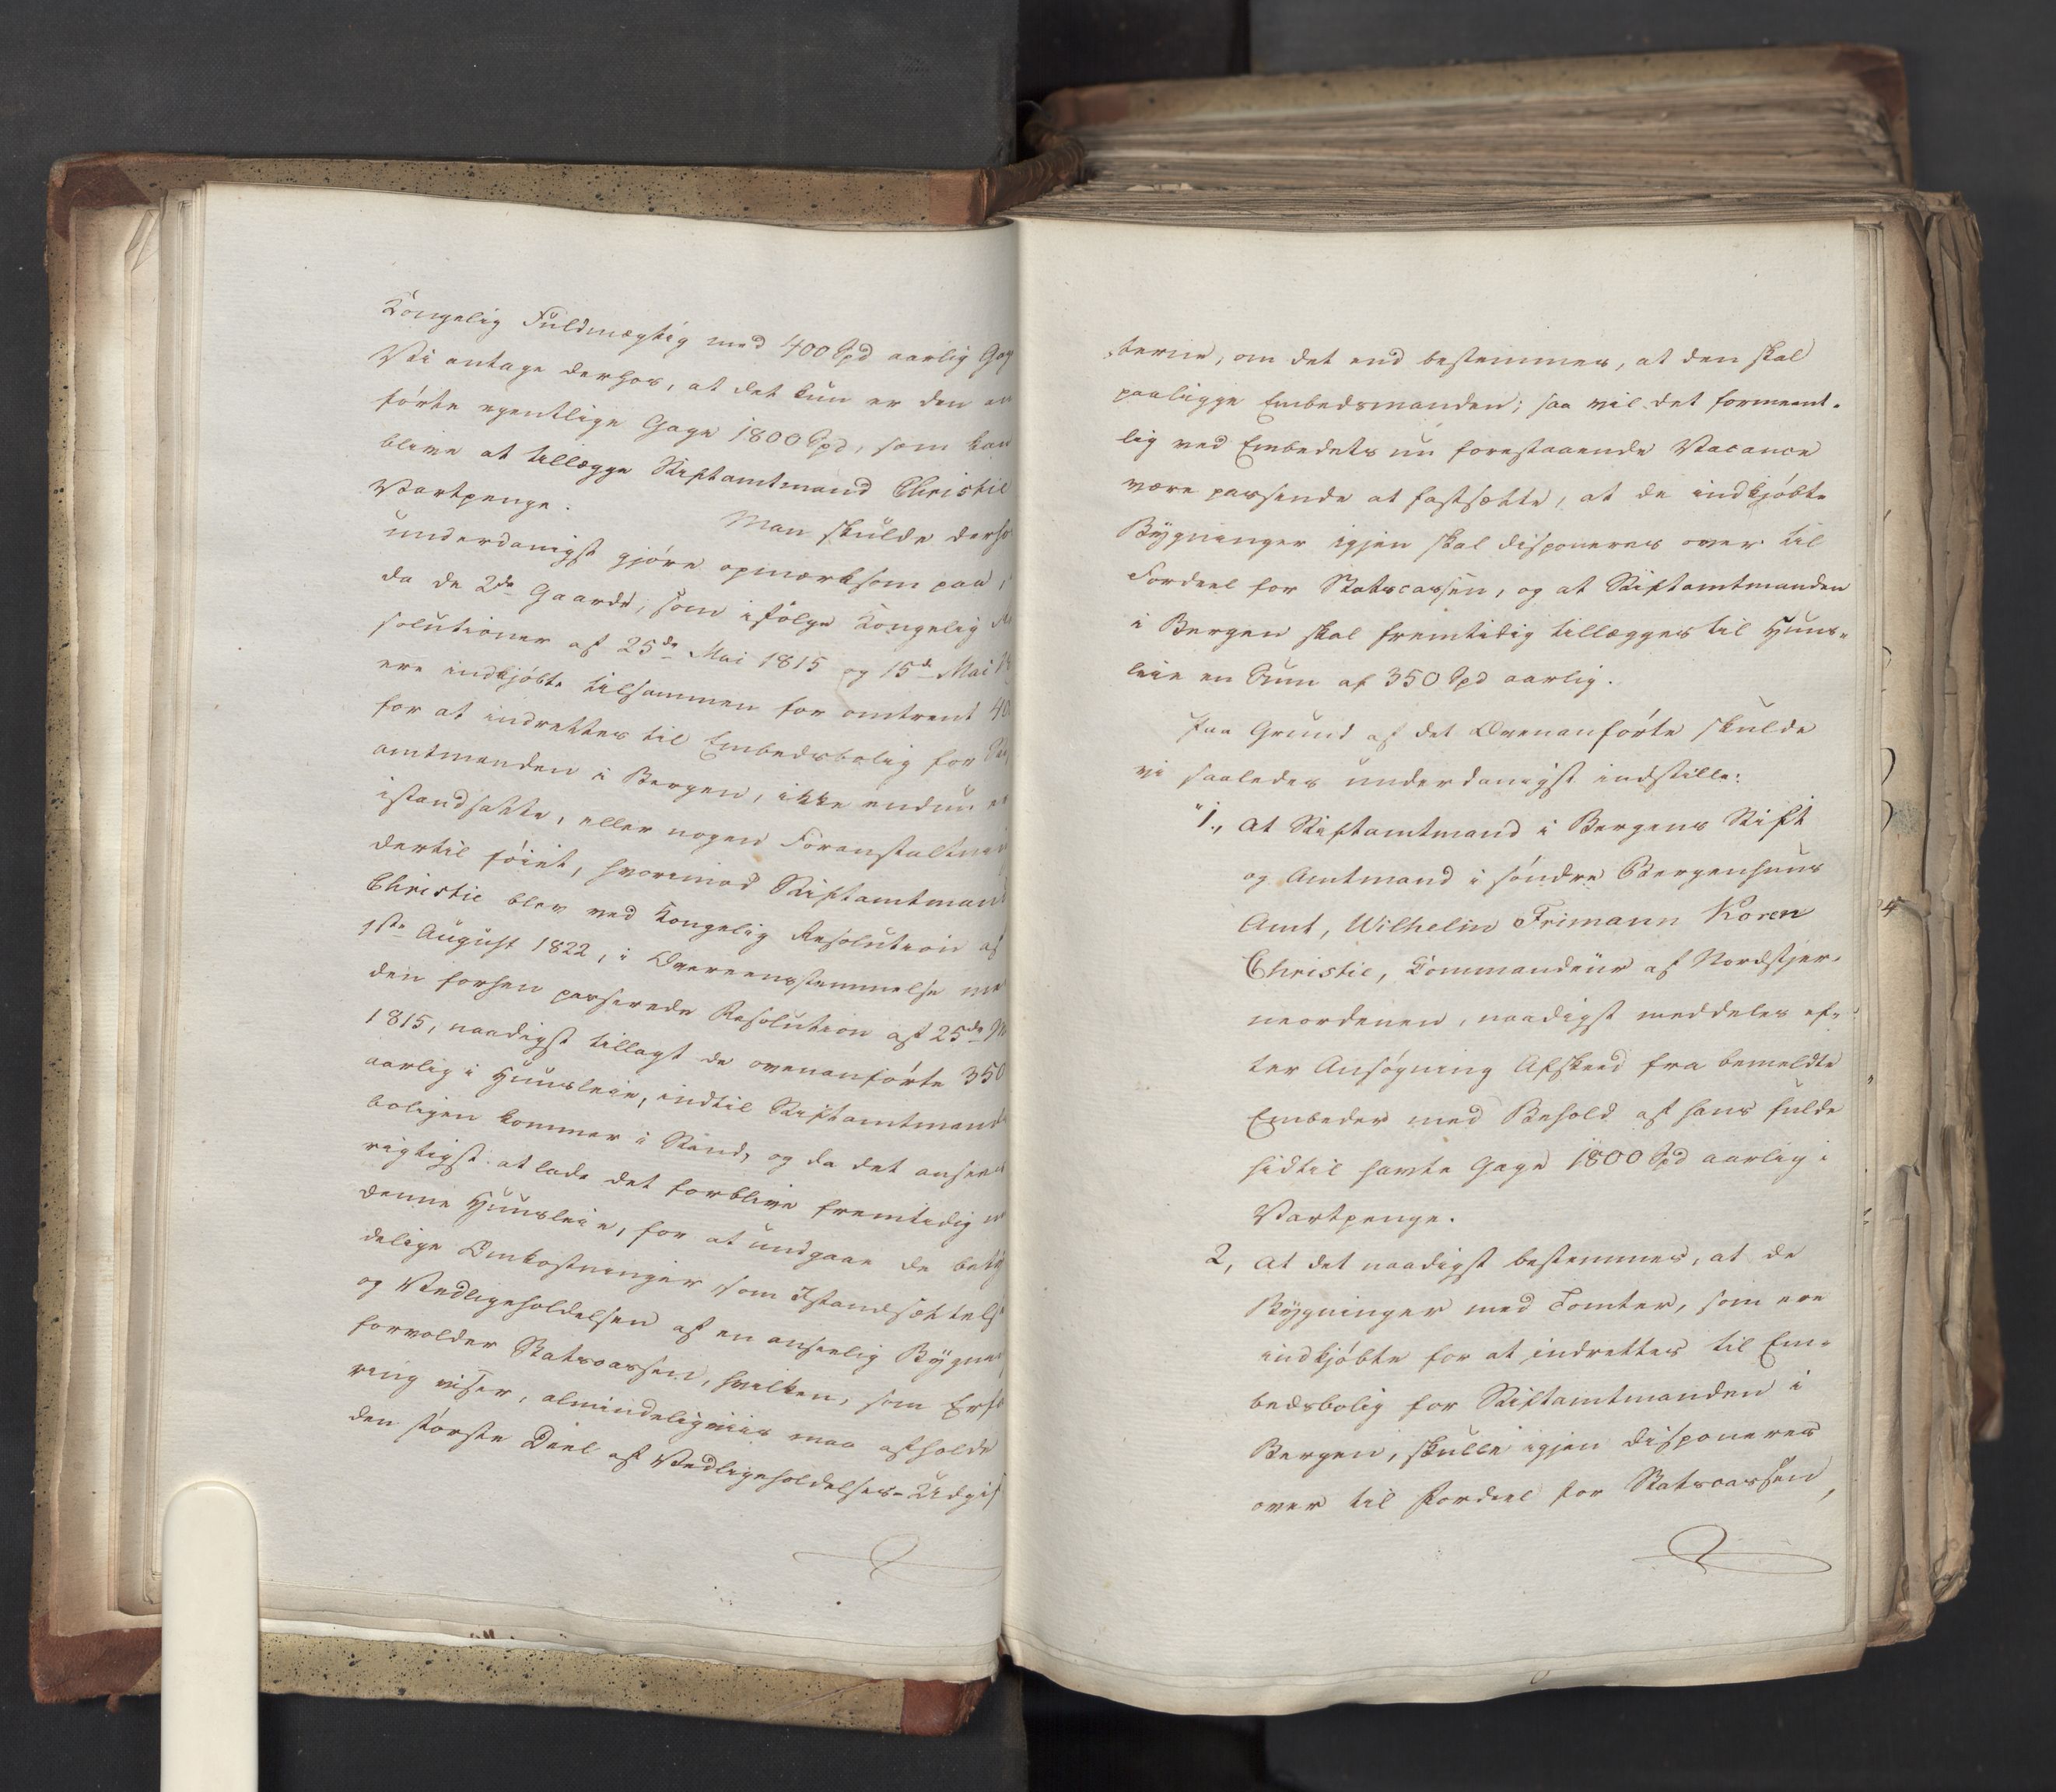 Kongelig Fuldmægtig med 400 Spd aarlig Gag
Vi antage derhos, at det kun er den an
førte egentlige Gage 1800 Spd, som kan
blive at tillægge Stiftamtmand Christie
Vartpenge.
Man skulde derho
underdanigst gjøre opmærksom paa,
da de 2de Gaarde, som ifølge Kongelig
solutioner af 25de Mai 1815 og 15de Mai
ere indkjøbte tilsammen for omtrent 40
for at indrettes til Embedsbolig for
amtmanden i Bergen, ikke endnu er
istandsatte, eller nogen Foranstaltni
dertil føiet, hvorimod Stiftamtmand
Christie blev ved Kongelig Resolution af
1ste August 1822, i Overeensstemmelse me
den forhen passerede Resolution af 25de M
1815, naadigst tillagt de ovenanførte 350
aarlig i Huusleie, indtil Stiftamtmand
boligen kommer i Stand, og da det ansees
rigtigst at lade det forblive fremtidig
denne Huusleie, for at undgaae de bety
delige Omkostninger som Istandsættels
og Vedligeholdelsen af en anseelig Bygni
forvolder Statscassen, hvilken, som Erfa
ring viser, almindeligviis maa afholde
den største Deel af Vedligeholdelses-Udgif
terne, om det end bestemmes, at den skal
paaligge Embedsmanden; saa vil det formeent-
lig ved Embedets nu forestaaende Vacance
være passende at fastsætte, at de indkjøbte
Bygninger igjen skal disponeres over til
Fordeel for Statscassen, og at Stiftamtmanden
i Bergen skal fremtidig tillægges til Huus-
leie en Sum af 350 Spd aarlig.
Paa Grund af det Ovenanførte skulde
vi saaledes underdanigst indstille:
"1., At Stiftamtmand i Bergens Stift
og Amtmand i søndre Bergenhuus
Amt, Wilhelm Frimann Koren
Christie, Kommandeur af Nordstjer-
neordenen, naadigst meddeles ef-
ter Ansøgning Afskeed fra bemeldte
Embeder med Behold af hans fulde
hidtil havte Gage 1800 Spd aarlig i
Vartpenge.
2, At det naadigst bestemmes, at de
Bygninger med Tomter, som ere
indkjøbte for at indrettes til Em-
bedsbolig for Stiftamtmanden i
Bergen, skulle igjen disponeres
over til Fordeel for Statscassen,